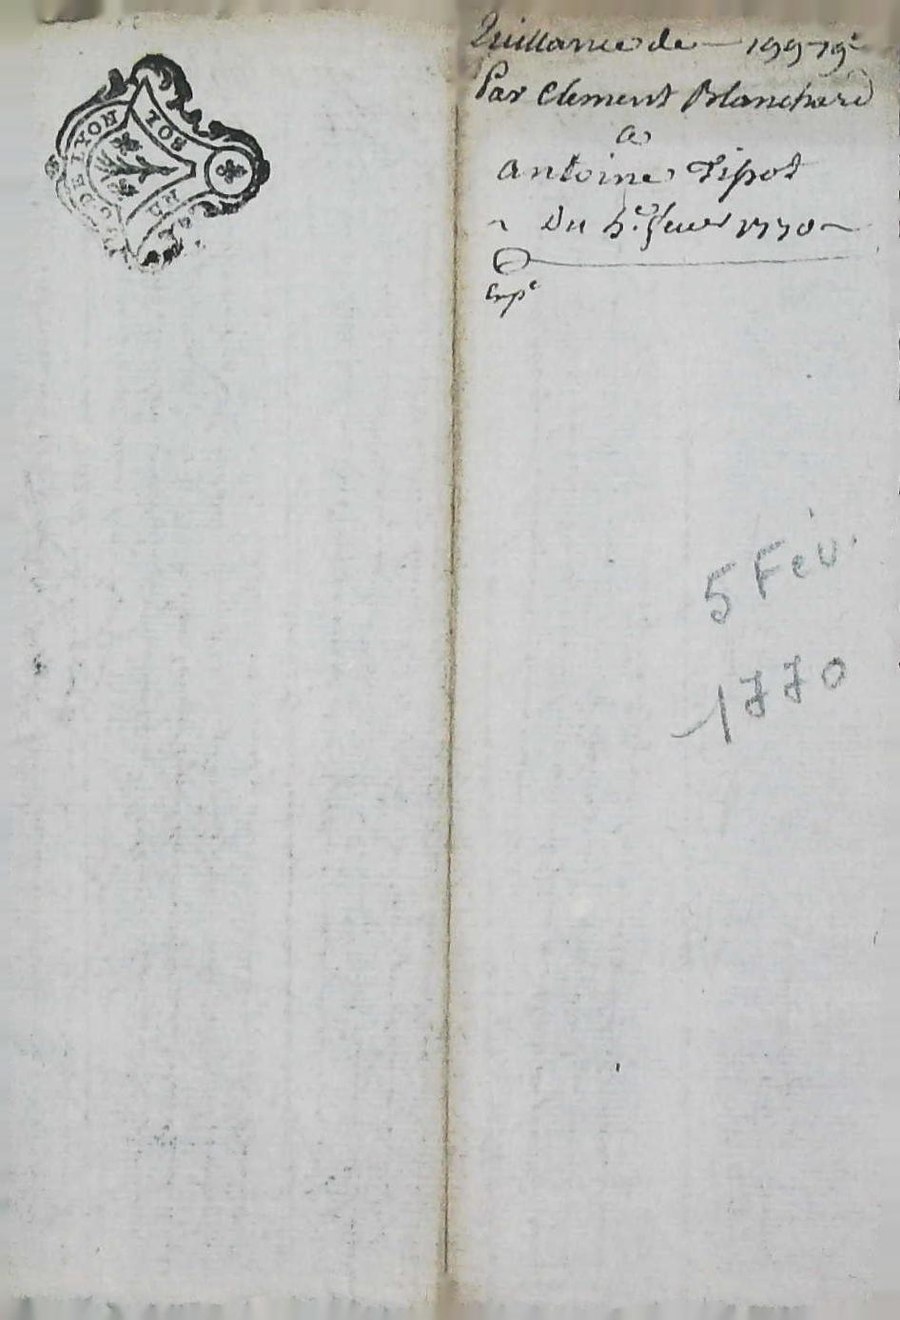 G. DE LYON
SOL
Quittance de — 199-19s
Par Clement Blanchard
a
antoine Tipot
Du 5e. feuer 1770
Expe
5 Fév.
1770